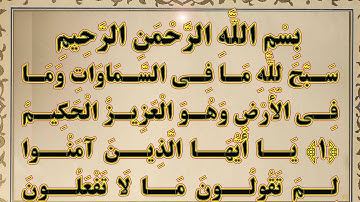 بِسْمِ اللَّهِ الرَّحْمَنِ الرَّحِيمِ
سَبَّحَ لِلَّهِ مَا فِي السَّمَاوَاتِ وَمَا
فِي الْأَرْضِ وَهُوَ الْعَزِيزُ الْحَكِيمُ
﴿١﴾ يَا أَيُّهَا الَّذِينَ آمَنُوا
لِمَ تَقُولُونَ مَا لَا تَفْعَلُونَ